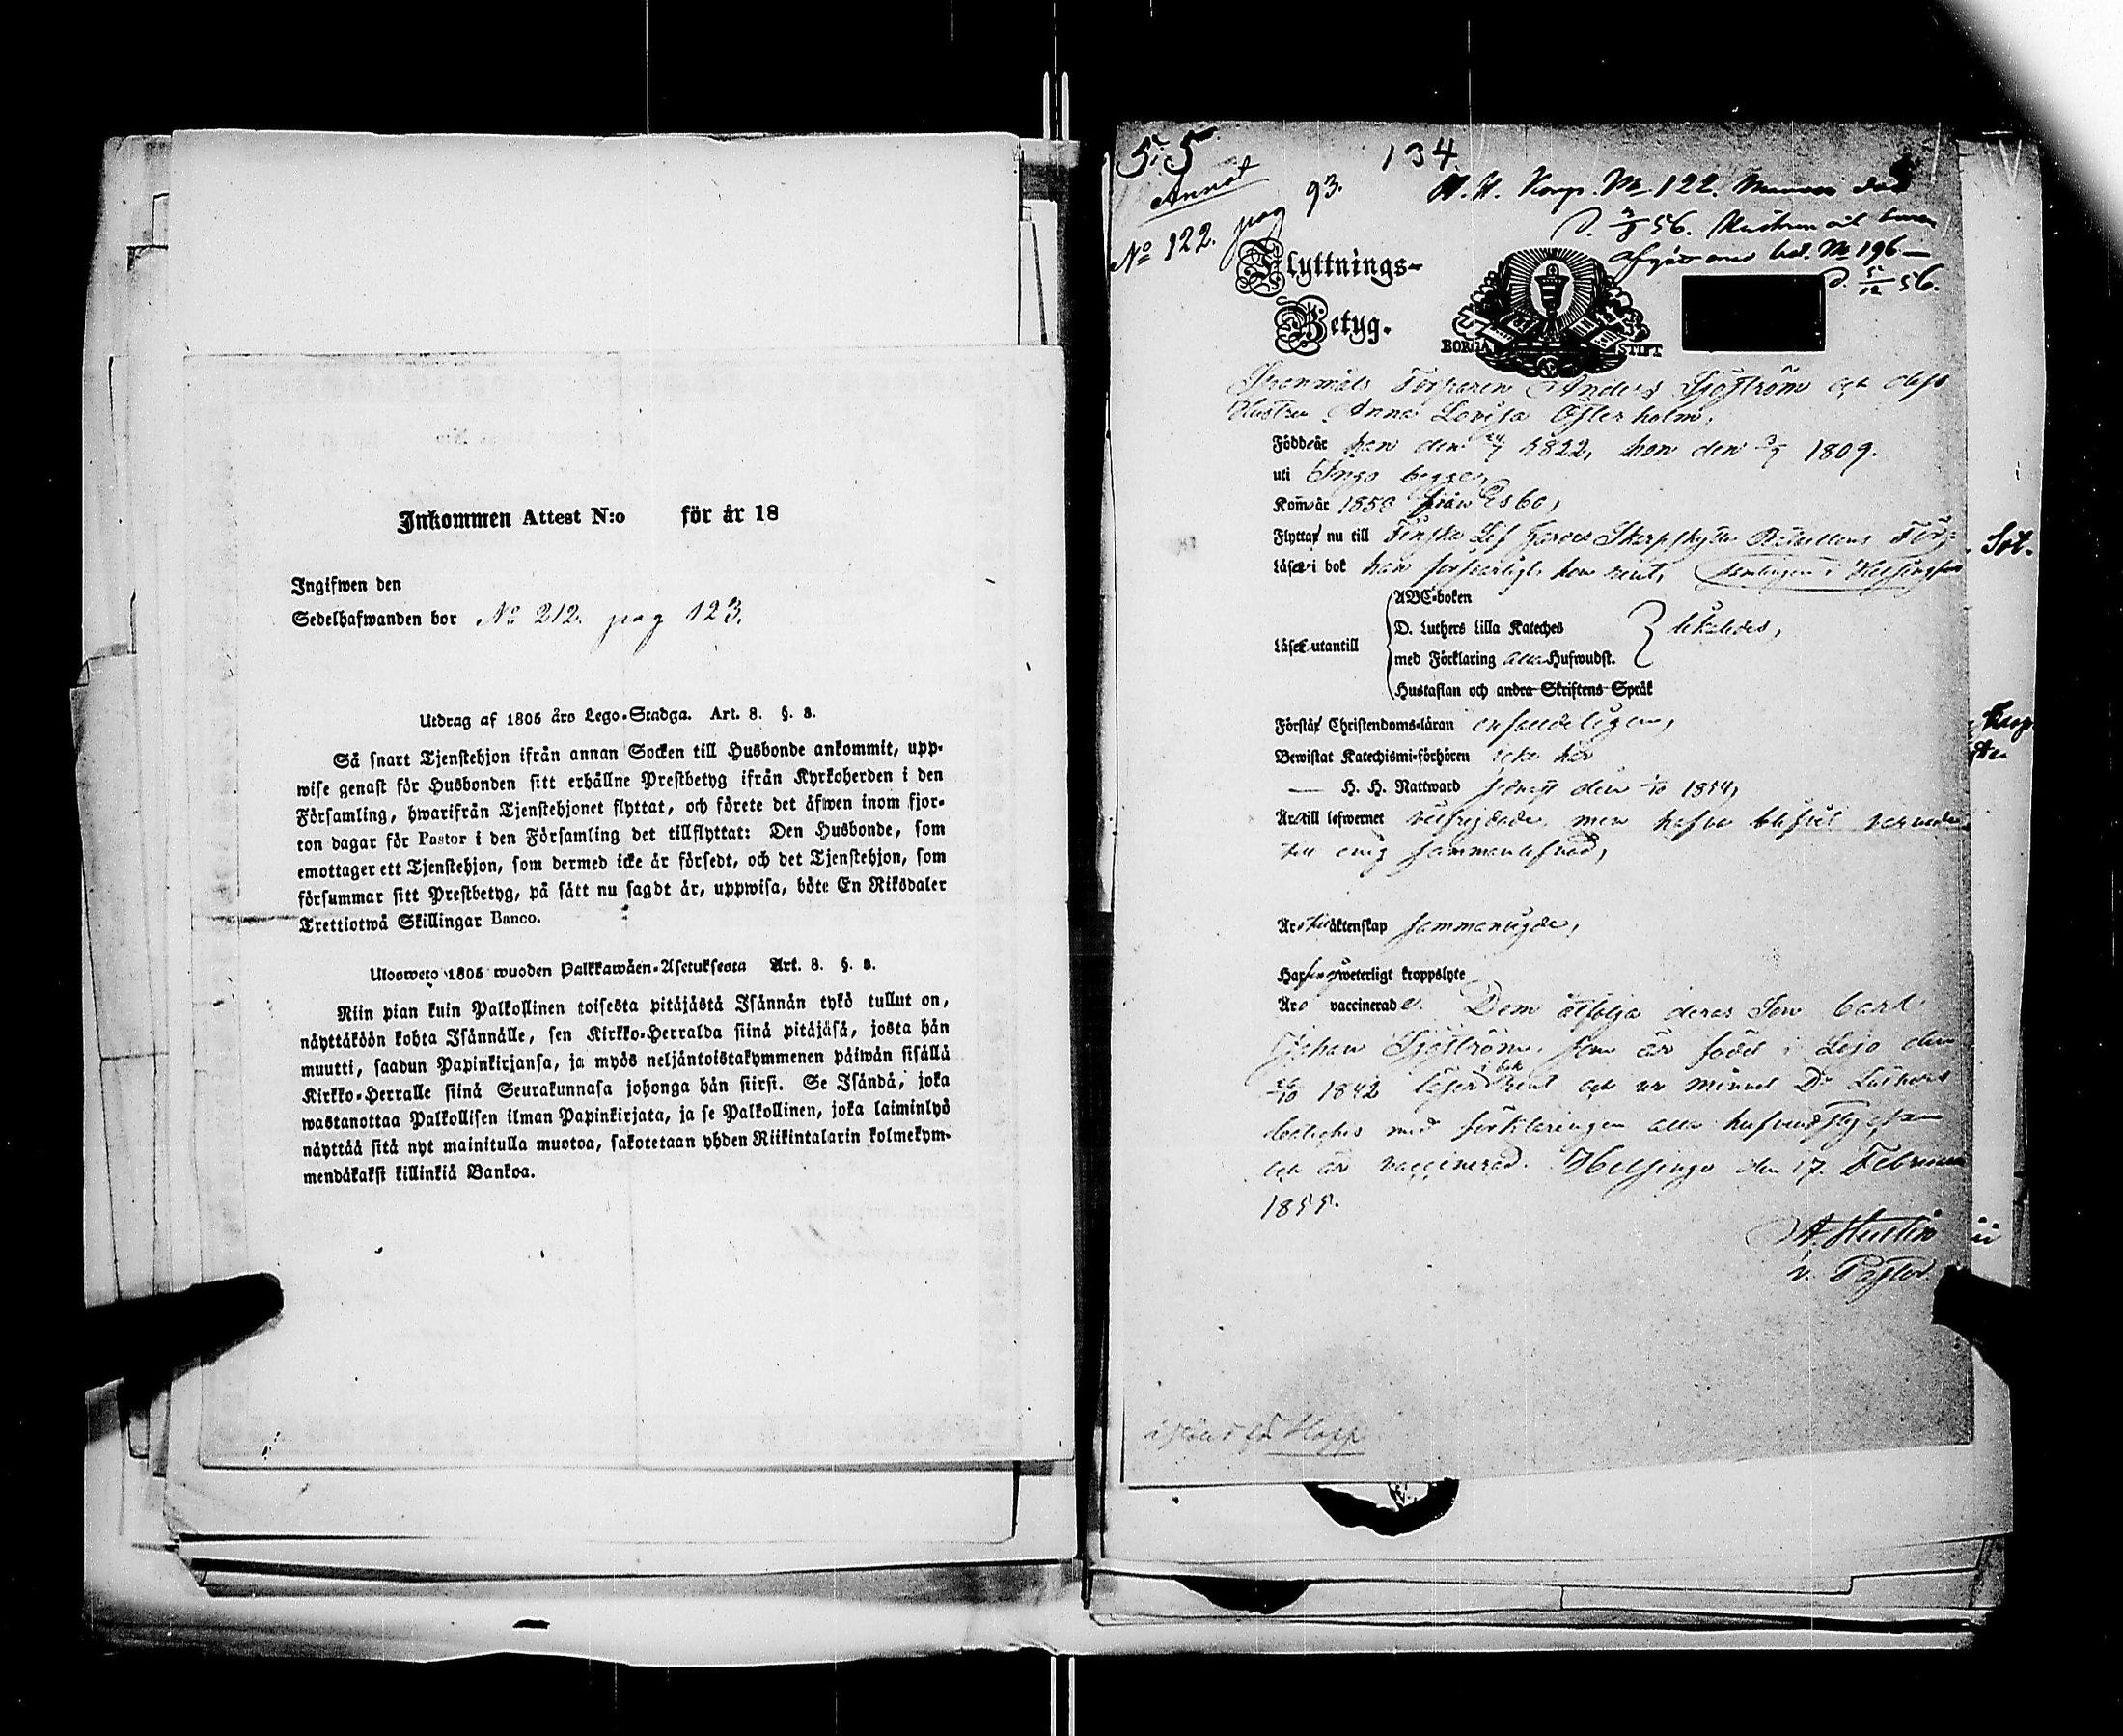 Inkommen Attest N:o för år 18
Ingifwen den
Sedelhafwanden bor No 212. pag 123.
Utdrag af 1805 års Lego-Stadga. Art. 8. §. 8.
Så snart Tjenstehjon ifrån annan Socken till Husbonde ankommit, upp-
wise genast för Husbonden sitt erhållne Prestbetyg ifrån Kyrkoherden i den
Församling, hwarifrån Tjenstehjonet flyttat, och förete det äfwen inom fjor-
ton dagar för Pastor i den Församling det tillflyttat: Den Husbonde, som
emottager ett Tjenstehjon, som dermed icke är försedt, och det Tjenstehjon, som
försummar sitt Prestbetyg, på sätt nu sagdt är, uppwisa, böte En Riksdaler
Trettiotwå Skillingar Banco.
Ulosweto 1805 wuoden Palkkawäen-Asetuksesta Art. 8. §. 8.
Niin pian kuin Palkollinen toisesta pitäjästä Isännän tykö tullut on,
näyttäköön kohta Isännälle, sen Kirkko-Herralda siinä pitäjäsä, josta hän
muutti, saadun Papinkirjansa, ja myös neljäntoistakymmenen päiwän sisällä
Kirkko-Herralle siinä Seurakunnasa johonga hän siirsi. Se Isändä, joka
wastanottaa Palkollisen ilman Papinkirjata, ja se Palkollinen, joka laiminlyö
näyttää sitä nyt mainitulla muotoa, sakotetaan yhden Riikintalarin kolmekym-
mendäkaksi killinkiä Bankoa.
55 134
Annot
No 122. pag 93.
No 122. Mannen död
56. Hustrun
afgått med bet. No 196 —
d. 5/12 56.
Flyttnings-
Betyg.
BORGÅ STIFT
Torparen Anders Sjöström och dess
Hustru Anna Lovisa Österholm,
Född är han den 1822, hon den 3/9 1809.
uti Ingo begge,
Kom år 1850 från Esbo,
Flyttar nu till Finska Lif Gardes Skarpskytte Bataillons För-
Läser i bok han försvarligt, hon rent, samlingen i Helsingfors
Läser utantill
ABC-boken
D. Luthers Lilla Kateches
med Förklaring alla Hufwudst.
Hustaflan och andra Skriftens Språk
likaledes,
Förstår Christendoms-läran
Bewistat Katechismi-förhören icke här
— H. H. Nattward den 1/10 1854,
Är till lefwernet men hafva blifvit
till enig sammanlefnad,
Äro till äktenskap sammanvigde,
Hafwa weterligt kroppslyte
Äro vaccinerade. Dem åtfölja deras Son Carl
Johan Sjöström, som är född i Lojo den
26/10 1842 läser i bok rent och ur minnet Dr Luthers
kateches med förklaringen alla hufvudstycken
och är vaccinerad. Helsinge den 17. Februari
1855.
v. Pastor